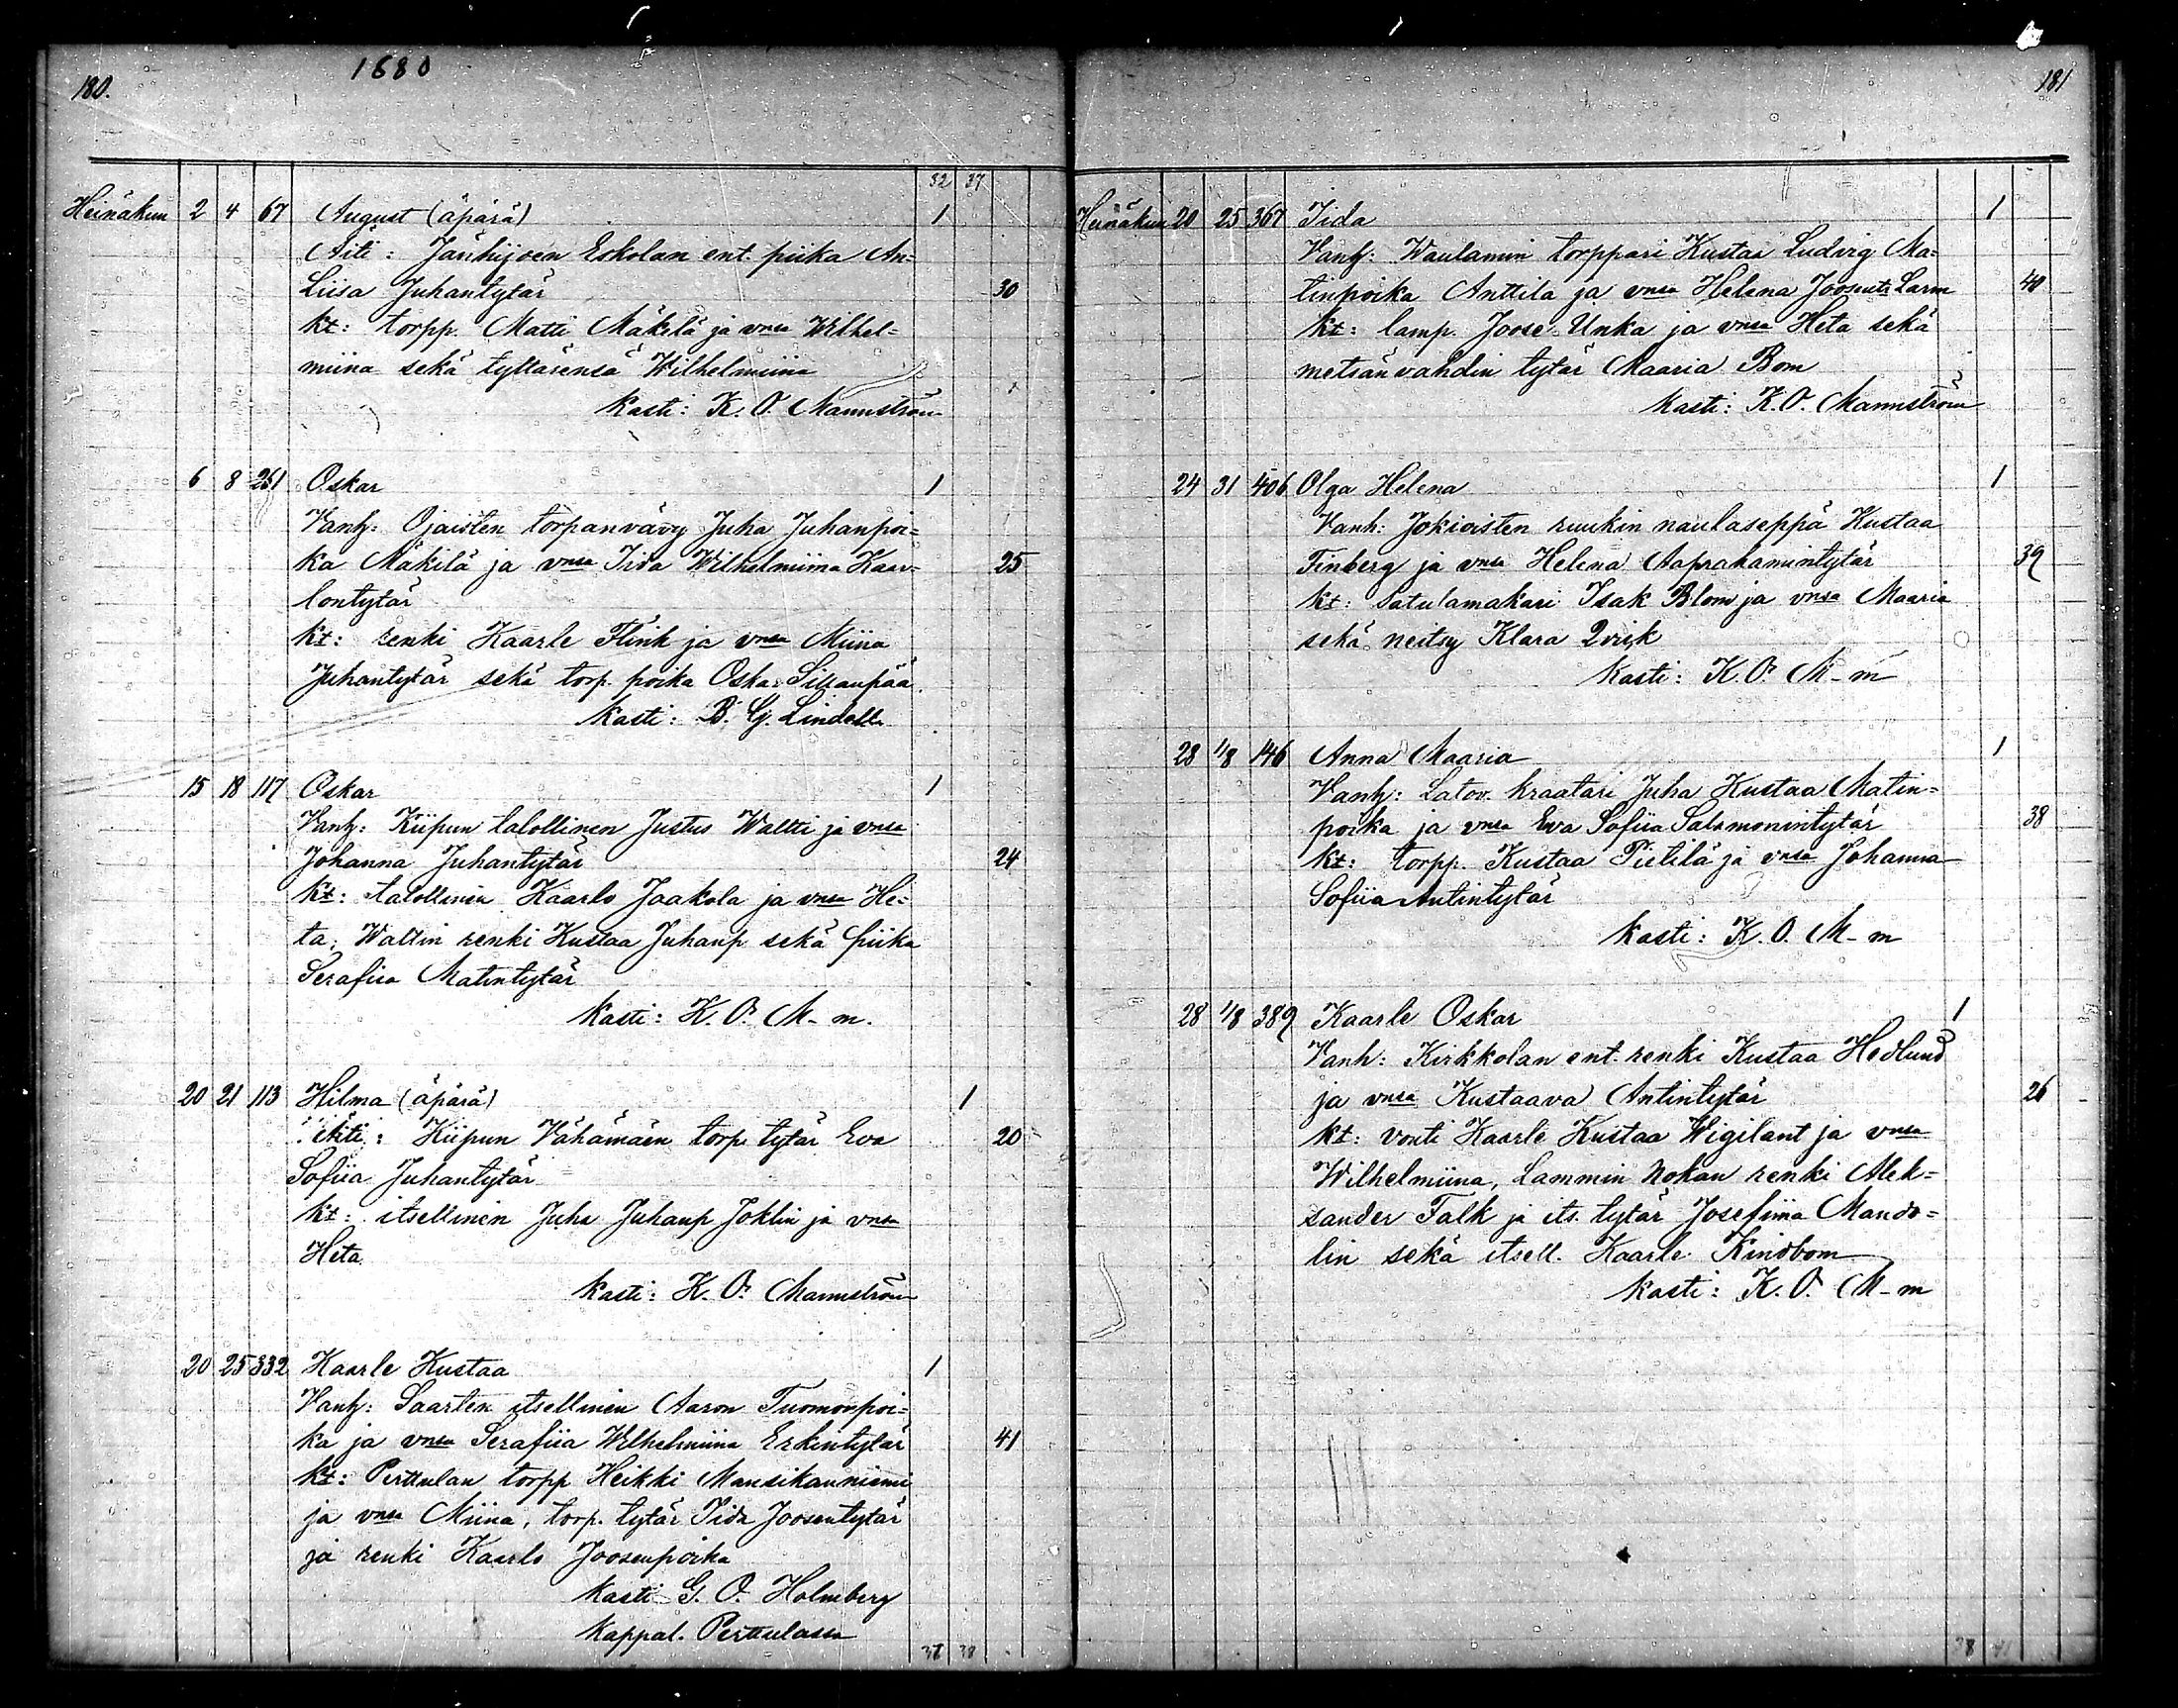 1880
180.
32 37
Heinäkuu 2 4 67 August (äpärä) 1
Äiti: Jänhijoen Eskolan ent. piika An=
Liisa Juhantytär 30
kt: torpp. Matti Mäkilä ja vnsa Wilhel=
miina sekä tyttärensä Wilhelmiina
Kasti: K. O. Mannström
6 8 261 Oskar 1
Vanh: Ojaisten torpanvävy Juha Juhanpoi=
ka Mäkilä ja vnsa Iida Wilhelmiina Kaar=
lontytär 25
kt: renki Kaarle Flink ja vnsa Miina
Juhantytär sekä torp. poika Oskar Sillanpää.
Kasti: B. G. Lindell
15 18 117 Oskar 1
Vanh: Kiipun talollinen Justus Waltti ja vnsa
Johanna Juhantytär 24
kt: talollinen Kaarlo Jaakola ja vnsa He=
ta, Waltin renki Kustaa Juhanp sekä piika
Serafiia Matintytär
Kasti: K. O. M-m.
20 21 113 Hilma (äpärä) 1
Äiti: Kiipun Vähämäen torp. tytär Eva 20
Sofiia Juhantytär
kt: itsellinen Juha Juhanp Joklin ja vnsa
Heta
Kasti: K. O. Mannström
20 25 332 Kaarle Kustaa 1
Vanh: Saarten itsellinen Aaron Tuomonpoi=
ka ja vnsa Serafiia Wilhelmiina Erkintytär 41
kt: Perttulan torpp Heikki Mansikanniemi
ja vnsa Miina, torp. tytär Iida Joosentytär
ja renki Kaarlo Joosenpoika
Kasti G. O. Holmberg
Kappal. Perttulassa
37 38
181
Heinäkuu 20 25 367 Iida 1
Vanh: Waulamin torppari Kustaa Ludvig Ma=
tinpoika Anttila ja vnsa Helena Joosents Larm 40
kt: lamp. Joose Unka ja vnsa Heta sekä
metsänvahdin tytär Maaria Bom
Kasti: K. O. Mannström
24 31 406 Olga Helena 1
Vanh: Jokioisten ruukin naulaseppä Kustaa
Finberg ja vnsa Helena Aaprahamintytär 39
kt: Satulamakari Isak Blom ja vnsa Maaria
sekä neitsy Klara Qvick
Kasti: K. O. M-m
28 1/8 146 Anna Maaria 1
Vanh: Latov. kraatari Juha Kustaa Matin=
poika ja vnsa Eva Sofiia Salomonintytär 38
kt: torpp. Kustaa Pietilä ja vnsa Johanna
Sofiia Antintytär
Kasti: K. O. M-m
28 1/8 389 Kaarle Oskar 1
Vanh: Kirkkolan ent. renki Kustaa Hedlund
ja vnsa Kustaava Antintytär 26
kt: vouti Kaarle Kustaa Wigilant ja vnsa
Wilhelmiina, Lammin Nokan renki Alek=
sander Falk ja its. tytär Josefiina Mando=
lin sekä itsell. Kaarle Kindbom
Kasti: K. O. M-m
38 41